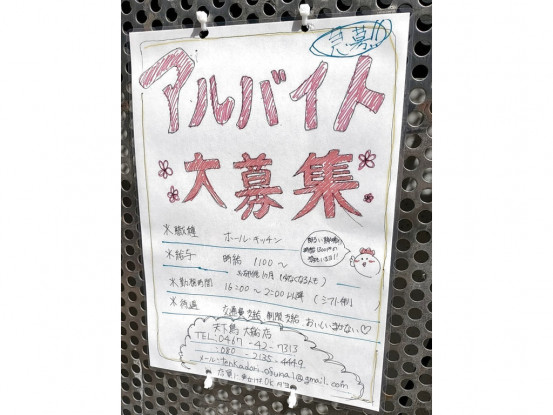 急募!!
アルバイト
大募集
※職種 ホール・キッチン
※給与 時給 1100〜
※勤務時間 16:00〜2:00以降 (シフト制)
※待遇 交通費支給 制服支給 おいしいまかない♡
天下鳥 大船店
TEL:0467-42-7313
080-2135-4449
メール:tenkadori.ofuna1@gmail.com